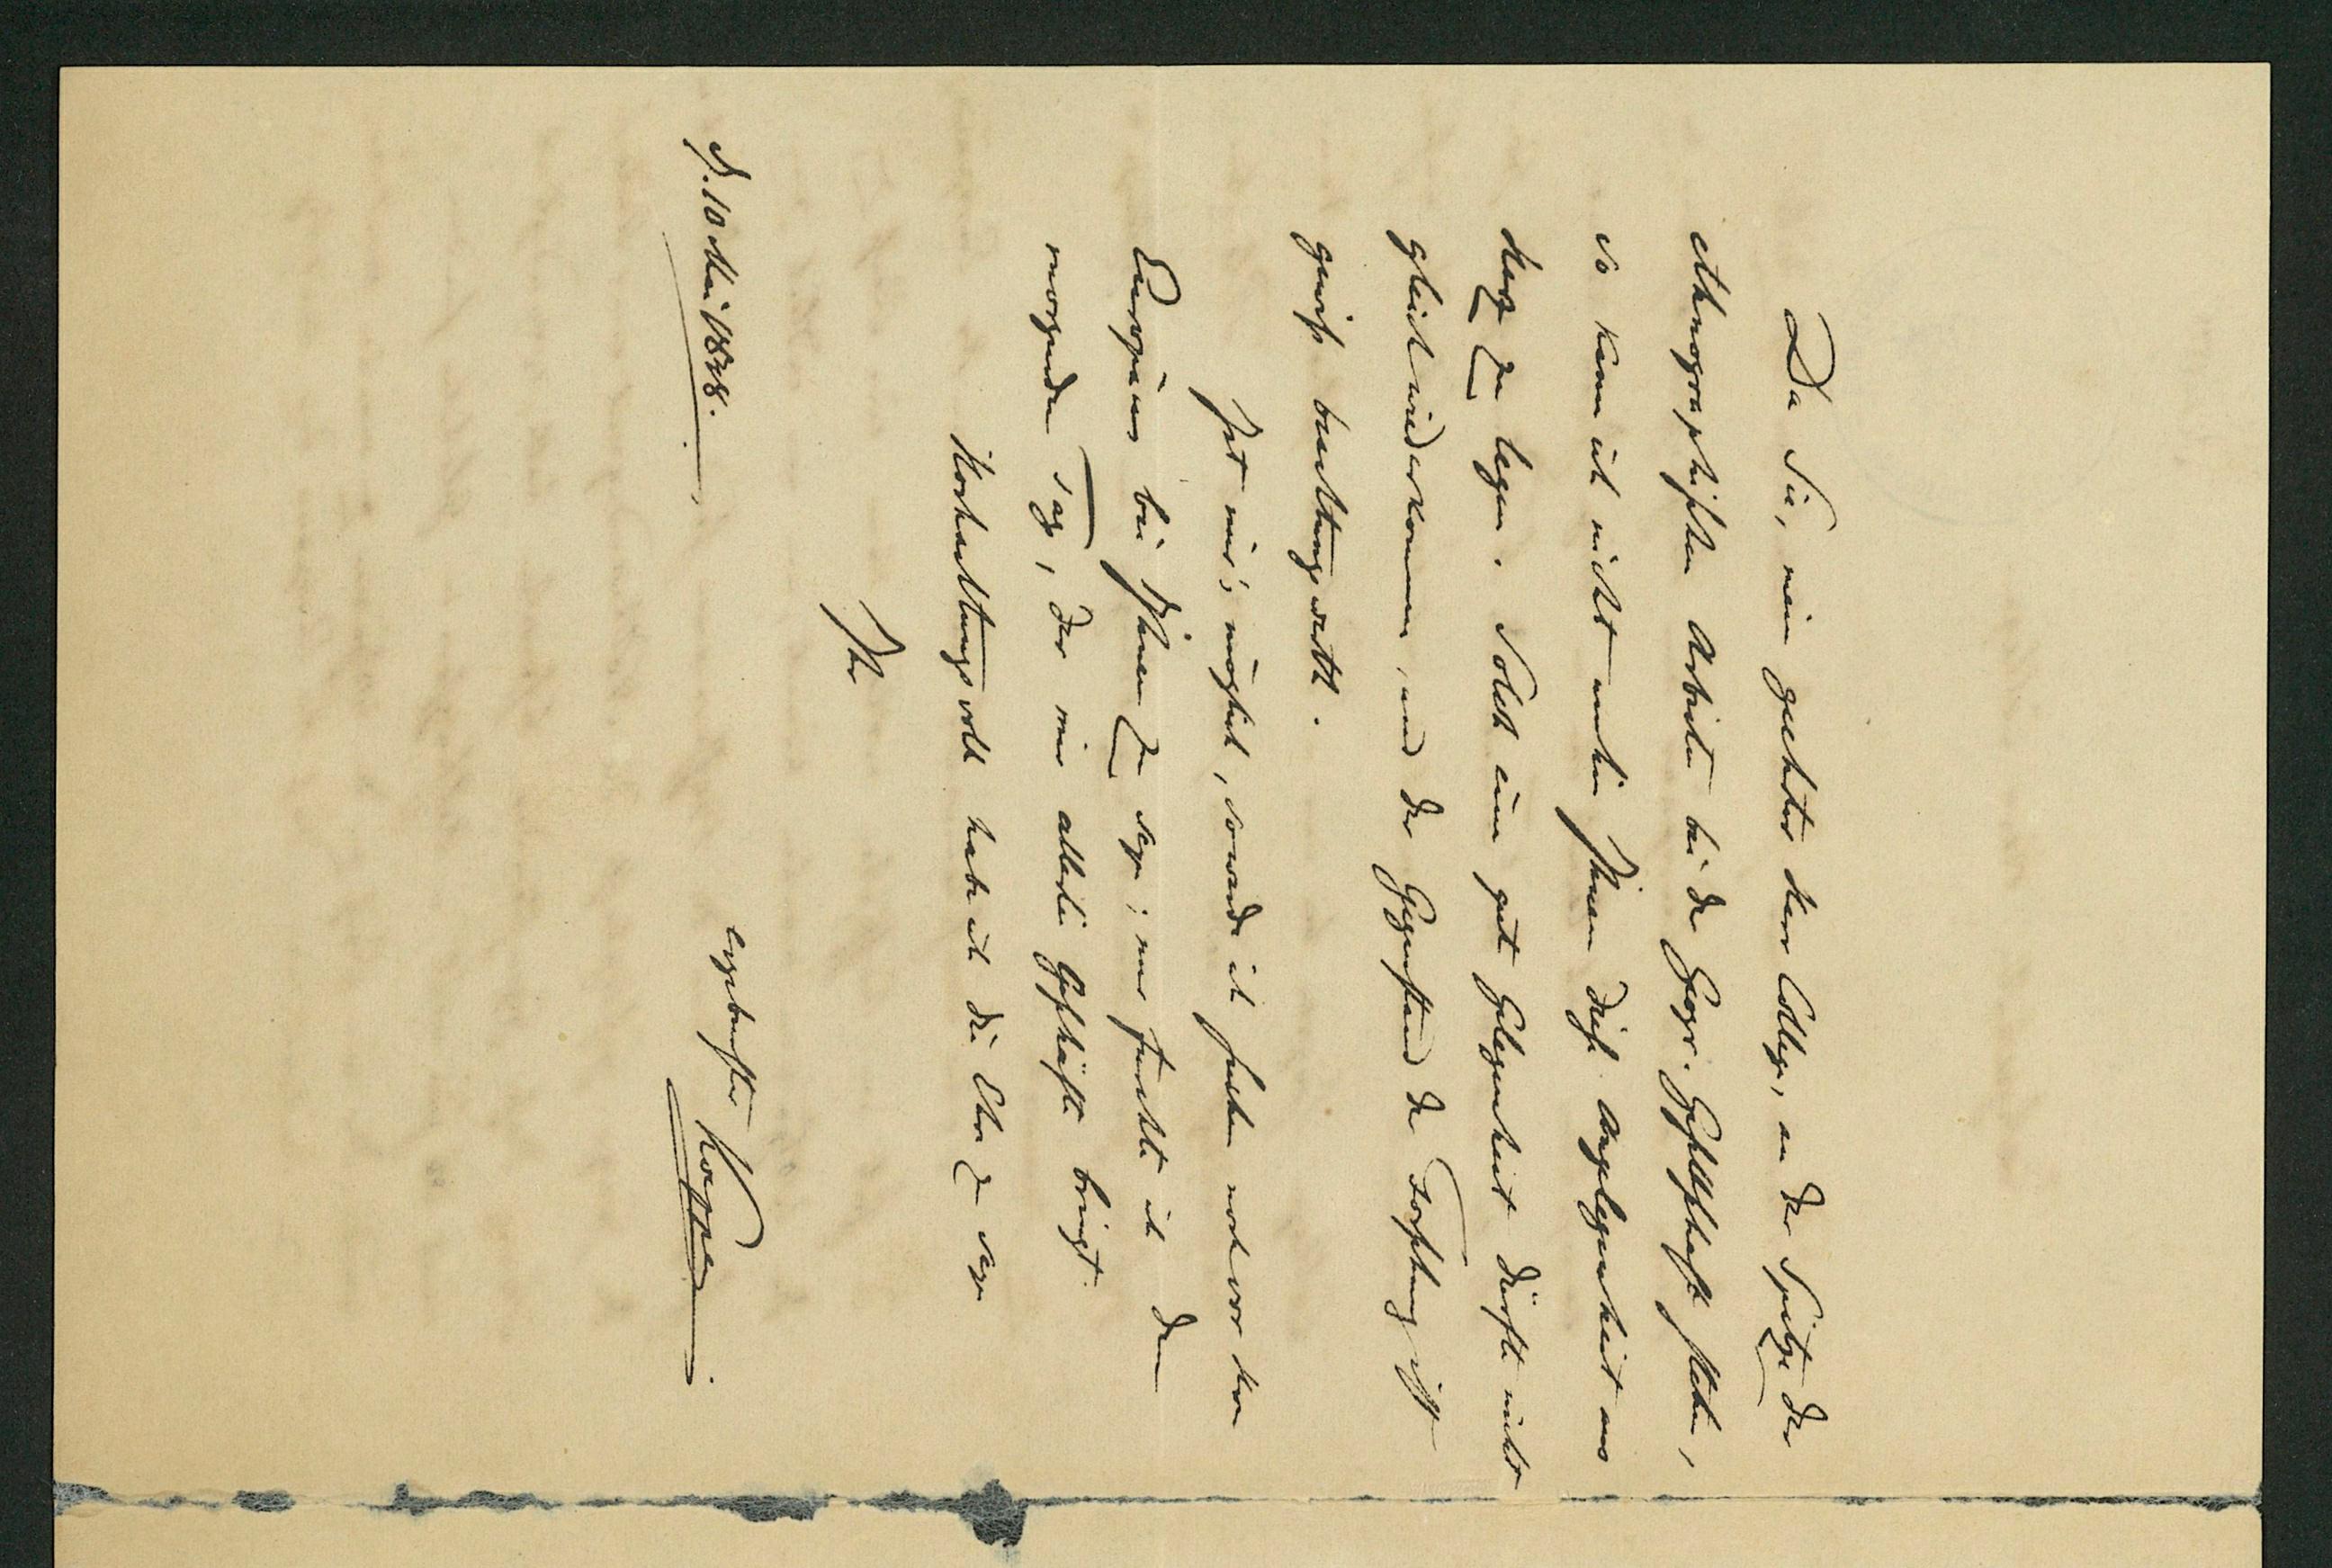 Da Sie, mein geehrter Herr College, an der Spitze der
ethnographischen Arbeiten bei der Geogr. Gesellschaft stehen,
so kann ich nicht umhin Ihnen diese Angelegenheit ans
Herz zu legen. Solch eine gute Gelegenheit dürfte nicht
gleich wiederkommen, und der Gegenstand der Forschung ist
gewiss beachtungswerth.
Ist mir's möglich, so werde ich suchen noch vor Herrn
Europäus bei Ihnen zu seyn; nur fürchte ich den
morgenden Tag, der mir allerlei Geschäfte bringt.
Hochachtungsvoll habe ich die Ehre zu seyn
Ihr
ergebenster Köppen
d. 10 Mai 1848.